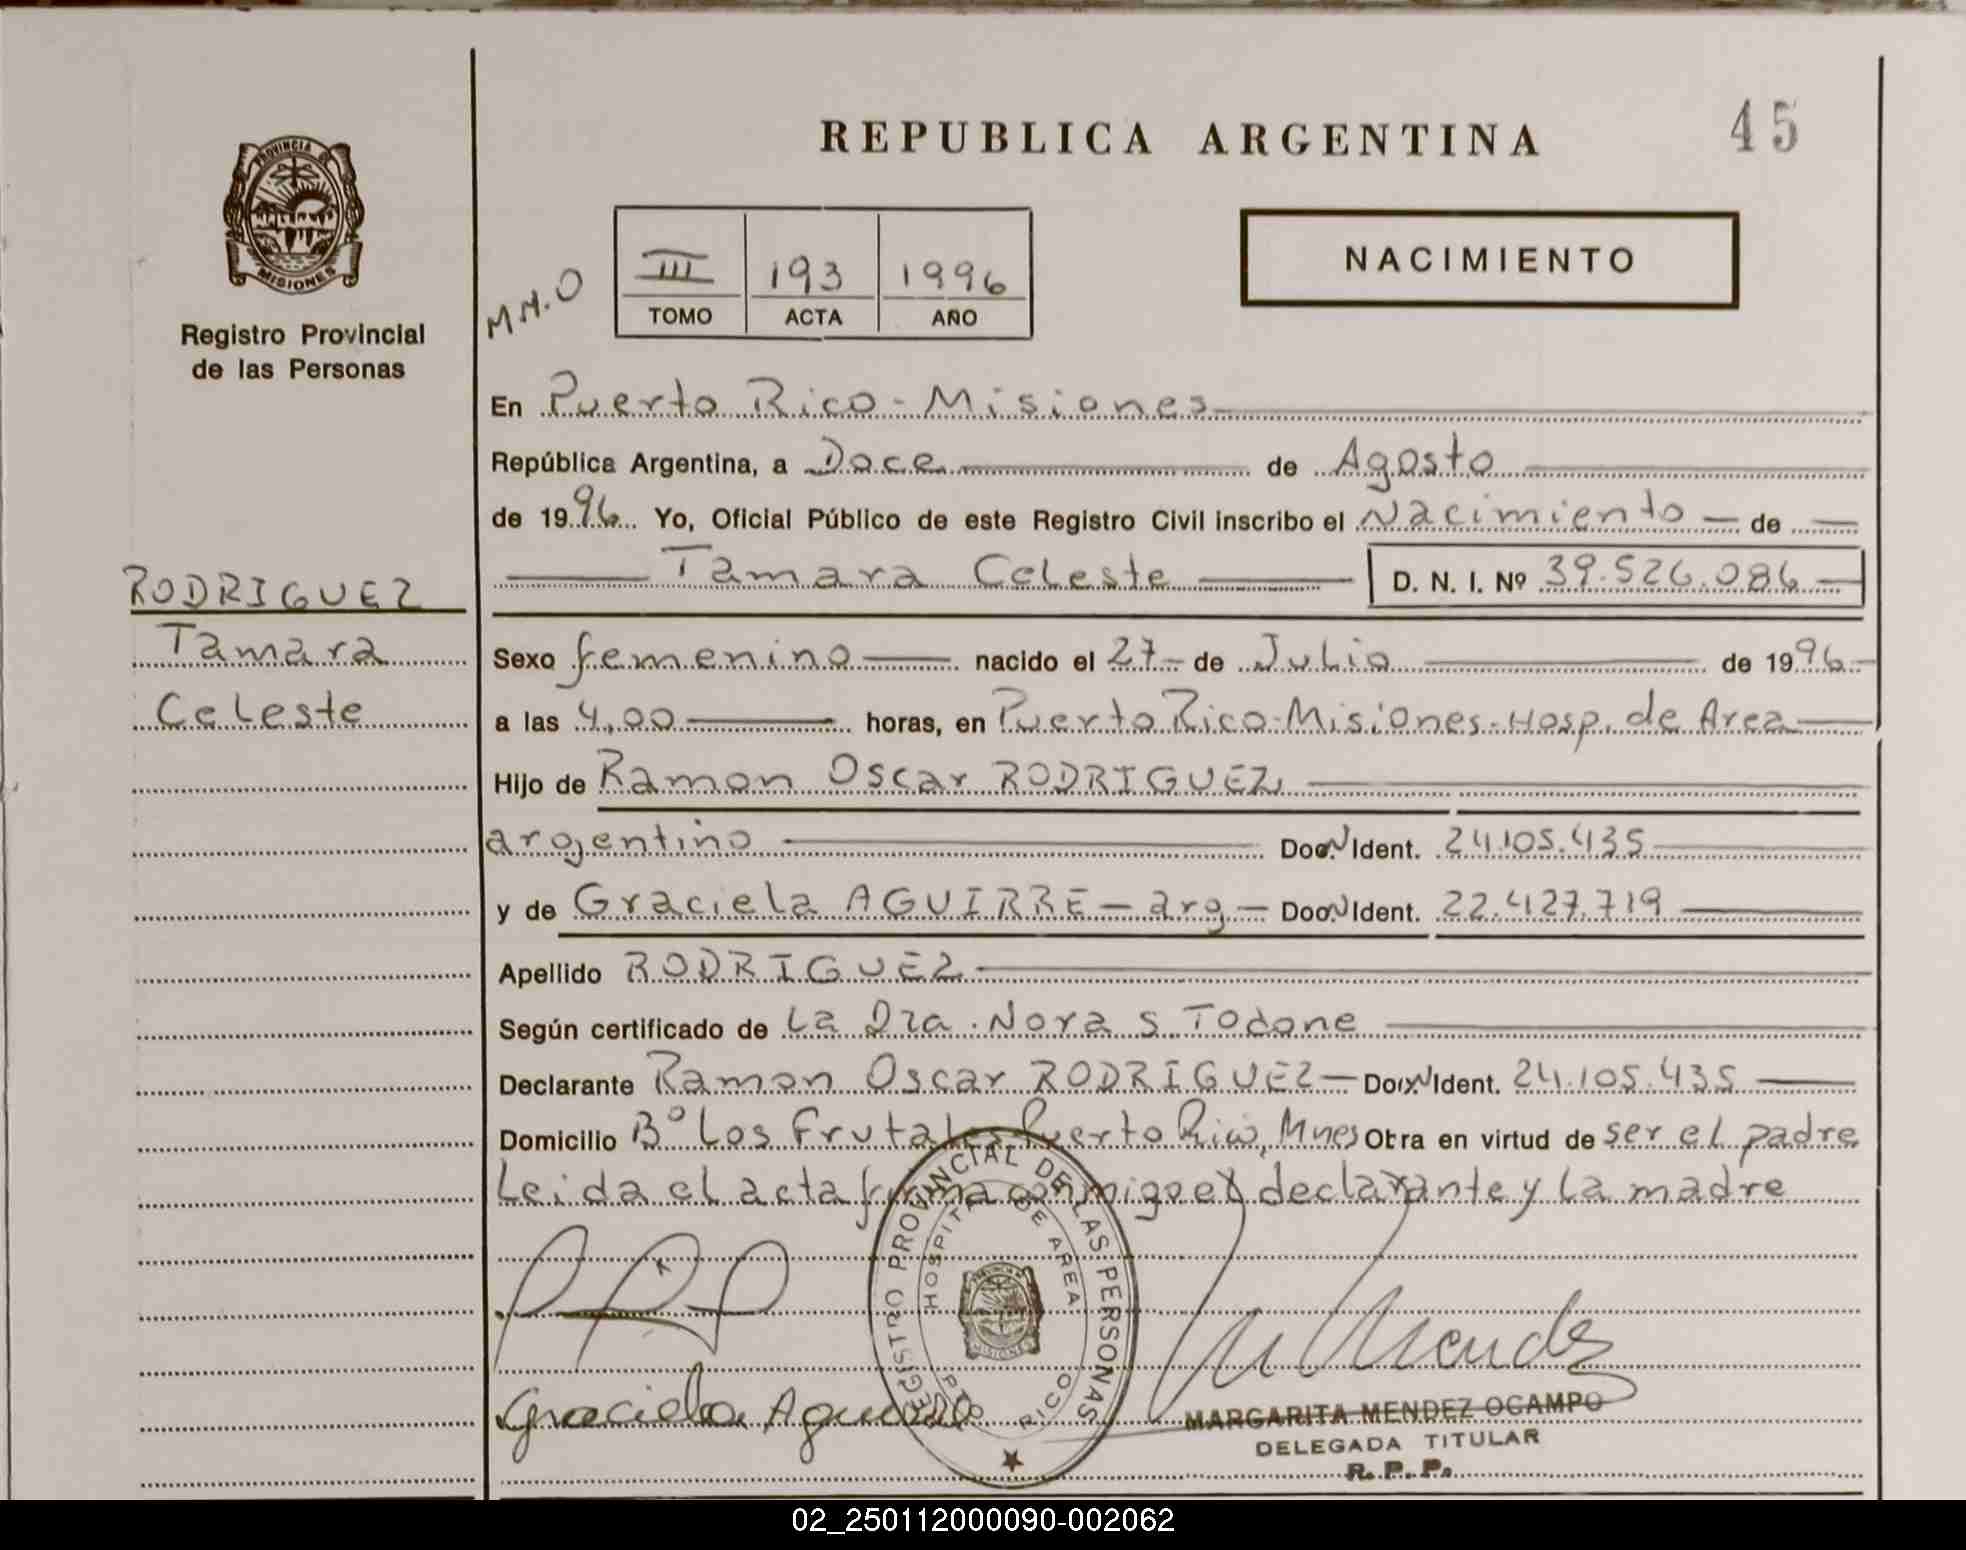 REPUBLICA ARGENTINA
45
PROVINCIA DE
MISIONES
Registro Provincial
de las Personas
M M. O
III 193 1996
TOMO ACTA AÑO
NACIMIENTO
En Puerto Rico - Misiones
República Argentina, a Doce de Agosto
de 1996 Yo, Oficial Público de este Registro Civil inscribo el Nacimiento de
Tamara Celeste D. N. I. Nº 39.526.086
RODRIGUEZ
Tamara
Celeste
Sexo femenino nacido el 27 - de Julio de 1996
a las 4,00 horas, en Puerto Rico - Misiones - Hosp. de Area
Hijo de Ramon Oscar RODRIGUEZ
argentino Doc. N Ident. 24.105.435
y de Graciela AGUIRRE - arg - Doc. N Ident. 22.427.719
Apellido RODRIGUEZ
Según certificado de La Dra. Nora S. Todone
Declarante Ramon Oscar RODRIGUEZ - Doc. N Ident. 24.105.435
Domicilio Bº Los Frutales Puerto Rico, Mnes Obra en virtud de ser el padre
Leida el acta firma conmigo el declarante y la madre
REGISTRO PROVINCIAL DE LAS PERSONAS
HOSPITAL DE AREA
PTO RICO
MISIONES
M Mendez
Graciela Aguirre
MARGARITA MENDEZ OCAMPO
DELEGADA TITULAR
R. P. P.
02_250112000090-002062